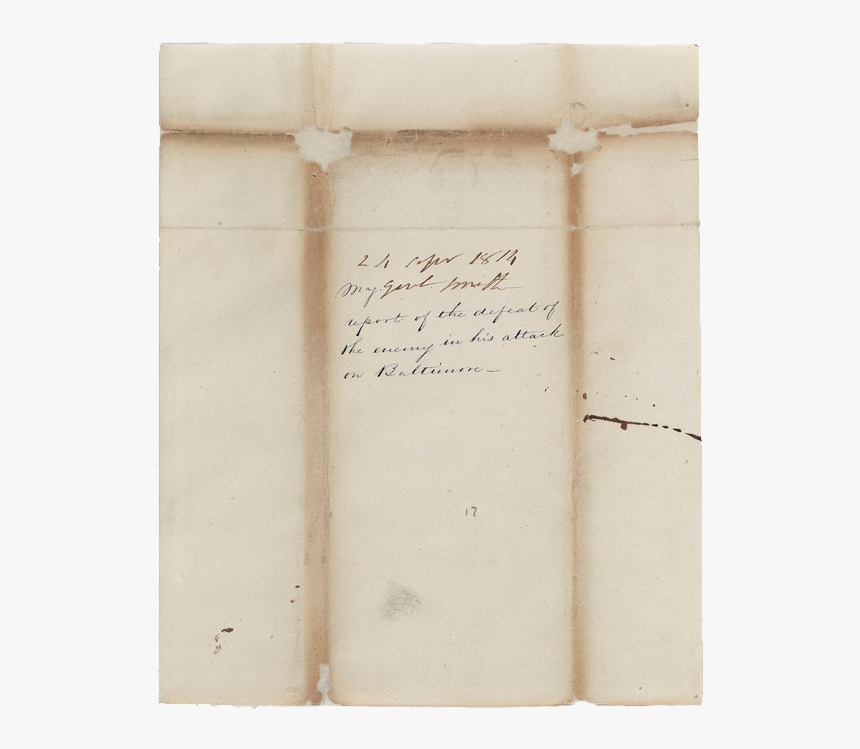 24 Sepr 1814
Maj Genl Smith
report of the defeat of
the enemy in his attack
on Baltimore—
17